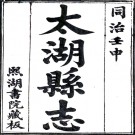 同治壬申
太湖縣志
熙湖書院藏板